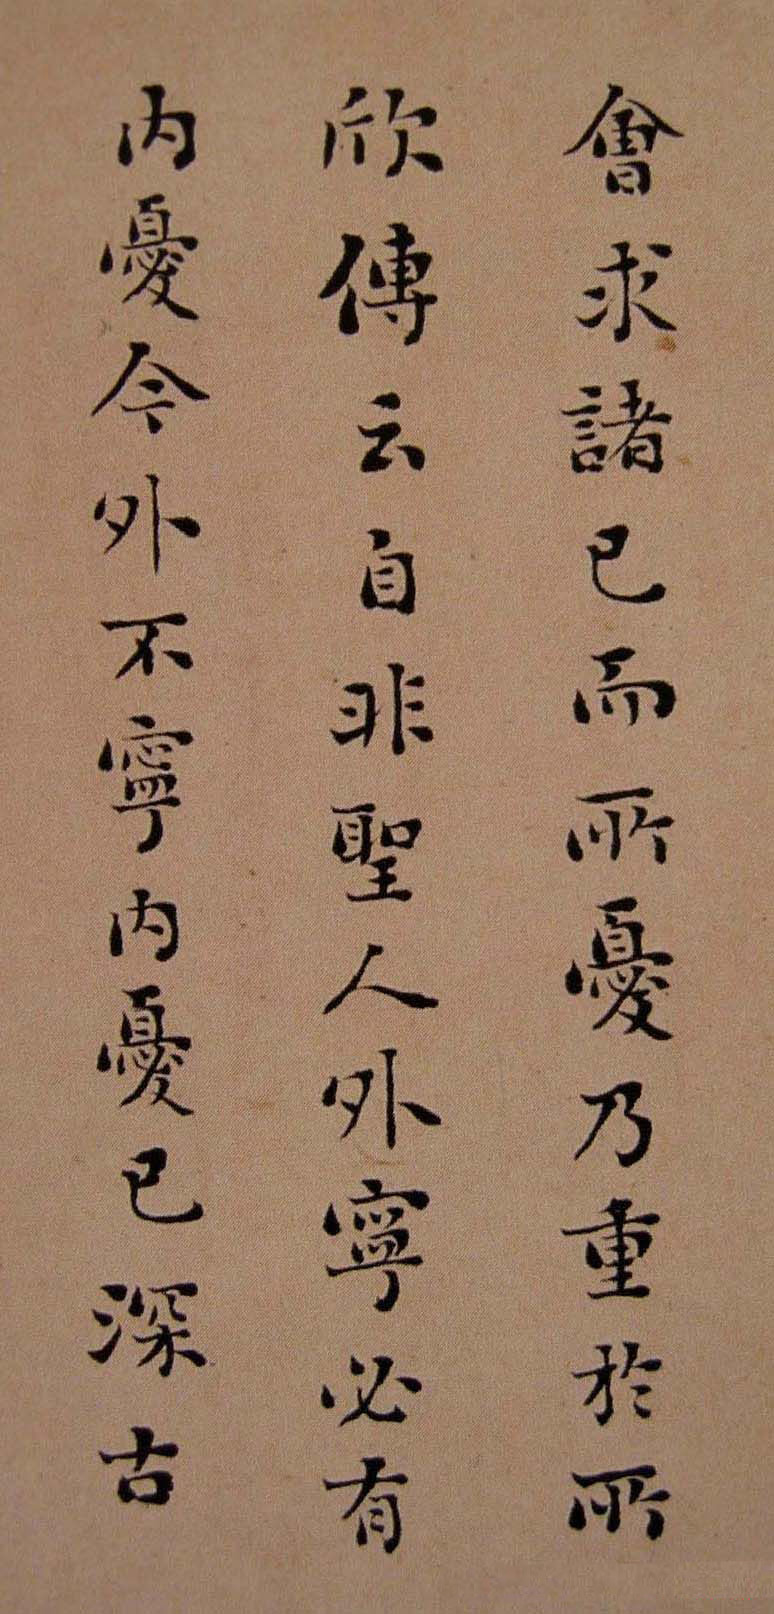 會求諸已而所憂乃重於所
欣傳云自非聖人外寧必有
内憂今外不寧内憂已深古